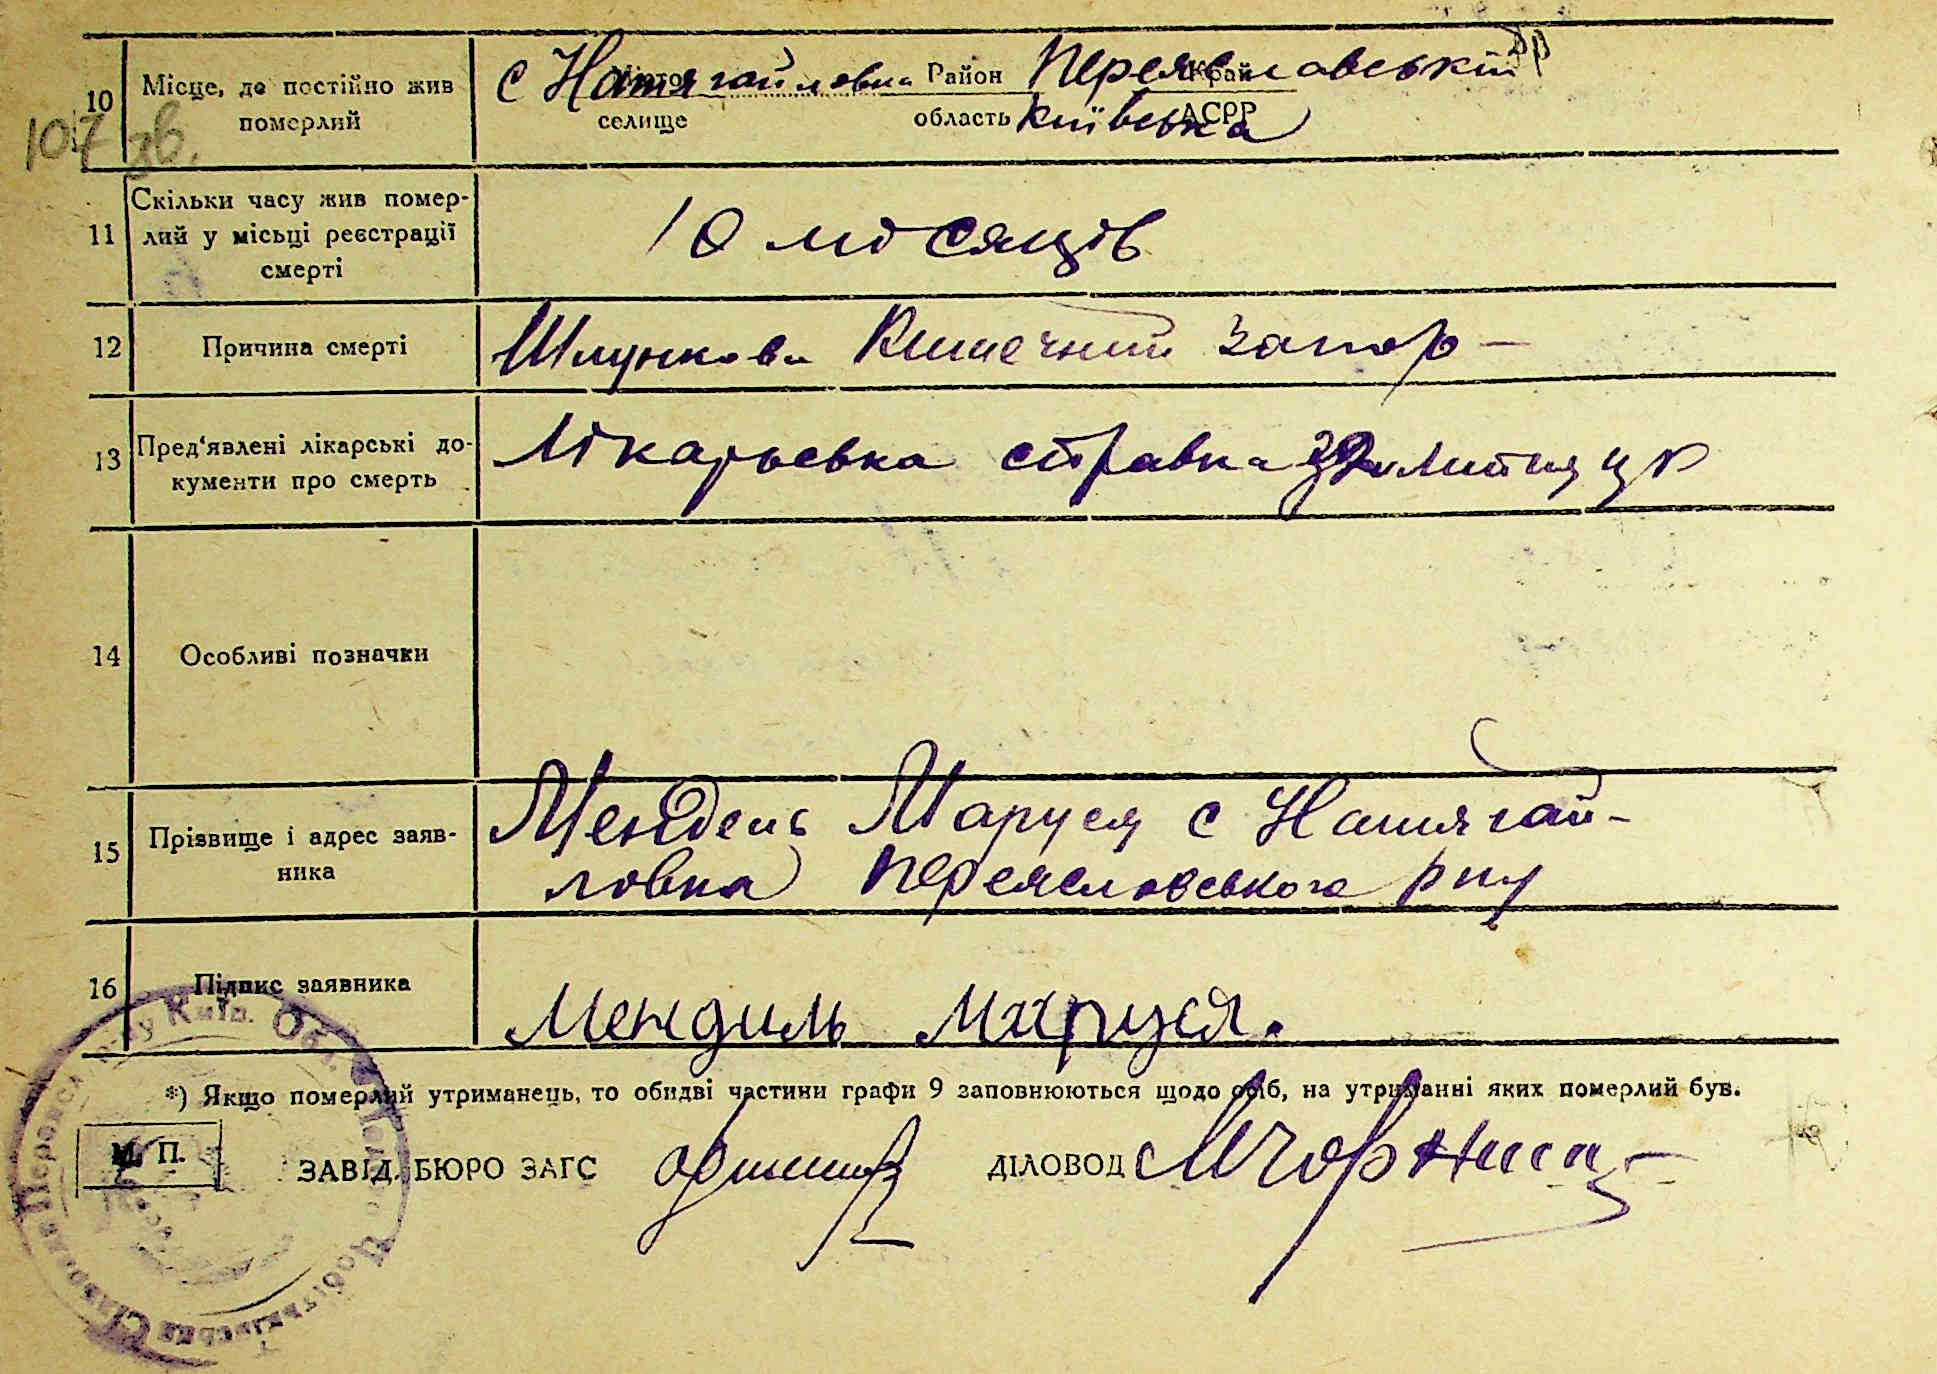 10 Місце, де постійно жив померлий
с Натягайловка Район Переяславський р
селище область Київська Край АСРР
107 зв.
11 Скільки часу жив помер-
лий у місьці реєстрації
смерті
10 місяців
12 Причина смерті Шлунково Кишечний запор –
13 Пред'явлені лікарські до-
кументи про смерть
Лікарьська справка
14 Особливі позначки
15 Прізвище і адрес заяв-
ника
Мендель Маруся с Натягай-
ловка Переясловського р ну
16 Підпис заявника Мендиль Маруся.
*) Якщо померлий утриманець, то обидві частини графи 9 заповнюються щодо осіб, на утриманні яких померлий був.
М. П. ЗАВІД. БЮРО ЗАГС ДІЛОВОД